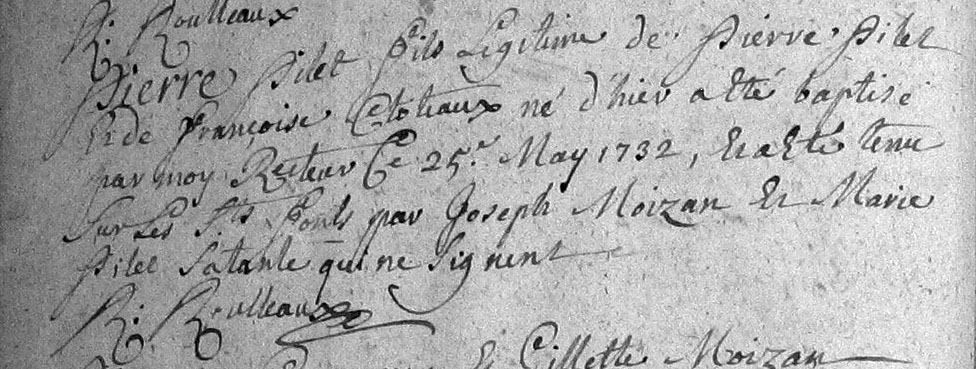 R. Roulleaux
Pierre Pilet fils Legitime de Pierre Pilet
Et de françoise né d'hier a Eté baptisé
par moy Recteur Ce 25.e May 1732, Et a Eté tenu
Sur Les S.ts fonts par Joseph Moizan Et Marie
Pilet Sa tante qui ne Signent
R. Roulleaux
Et Gillette Moizan